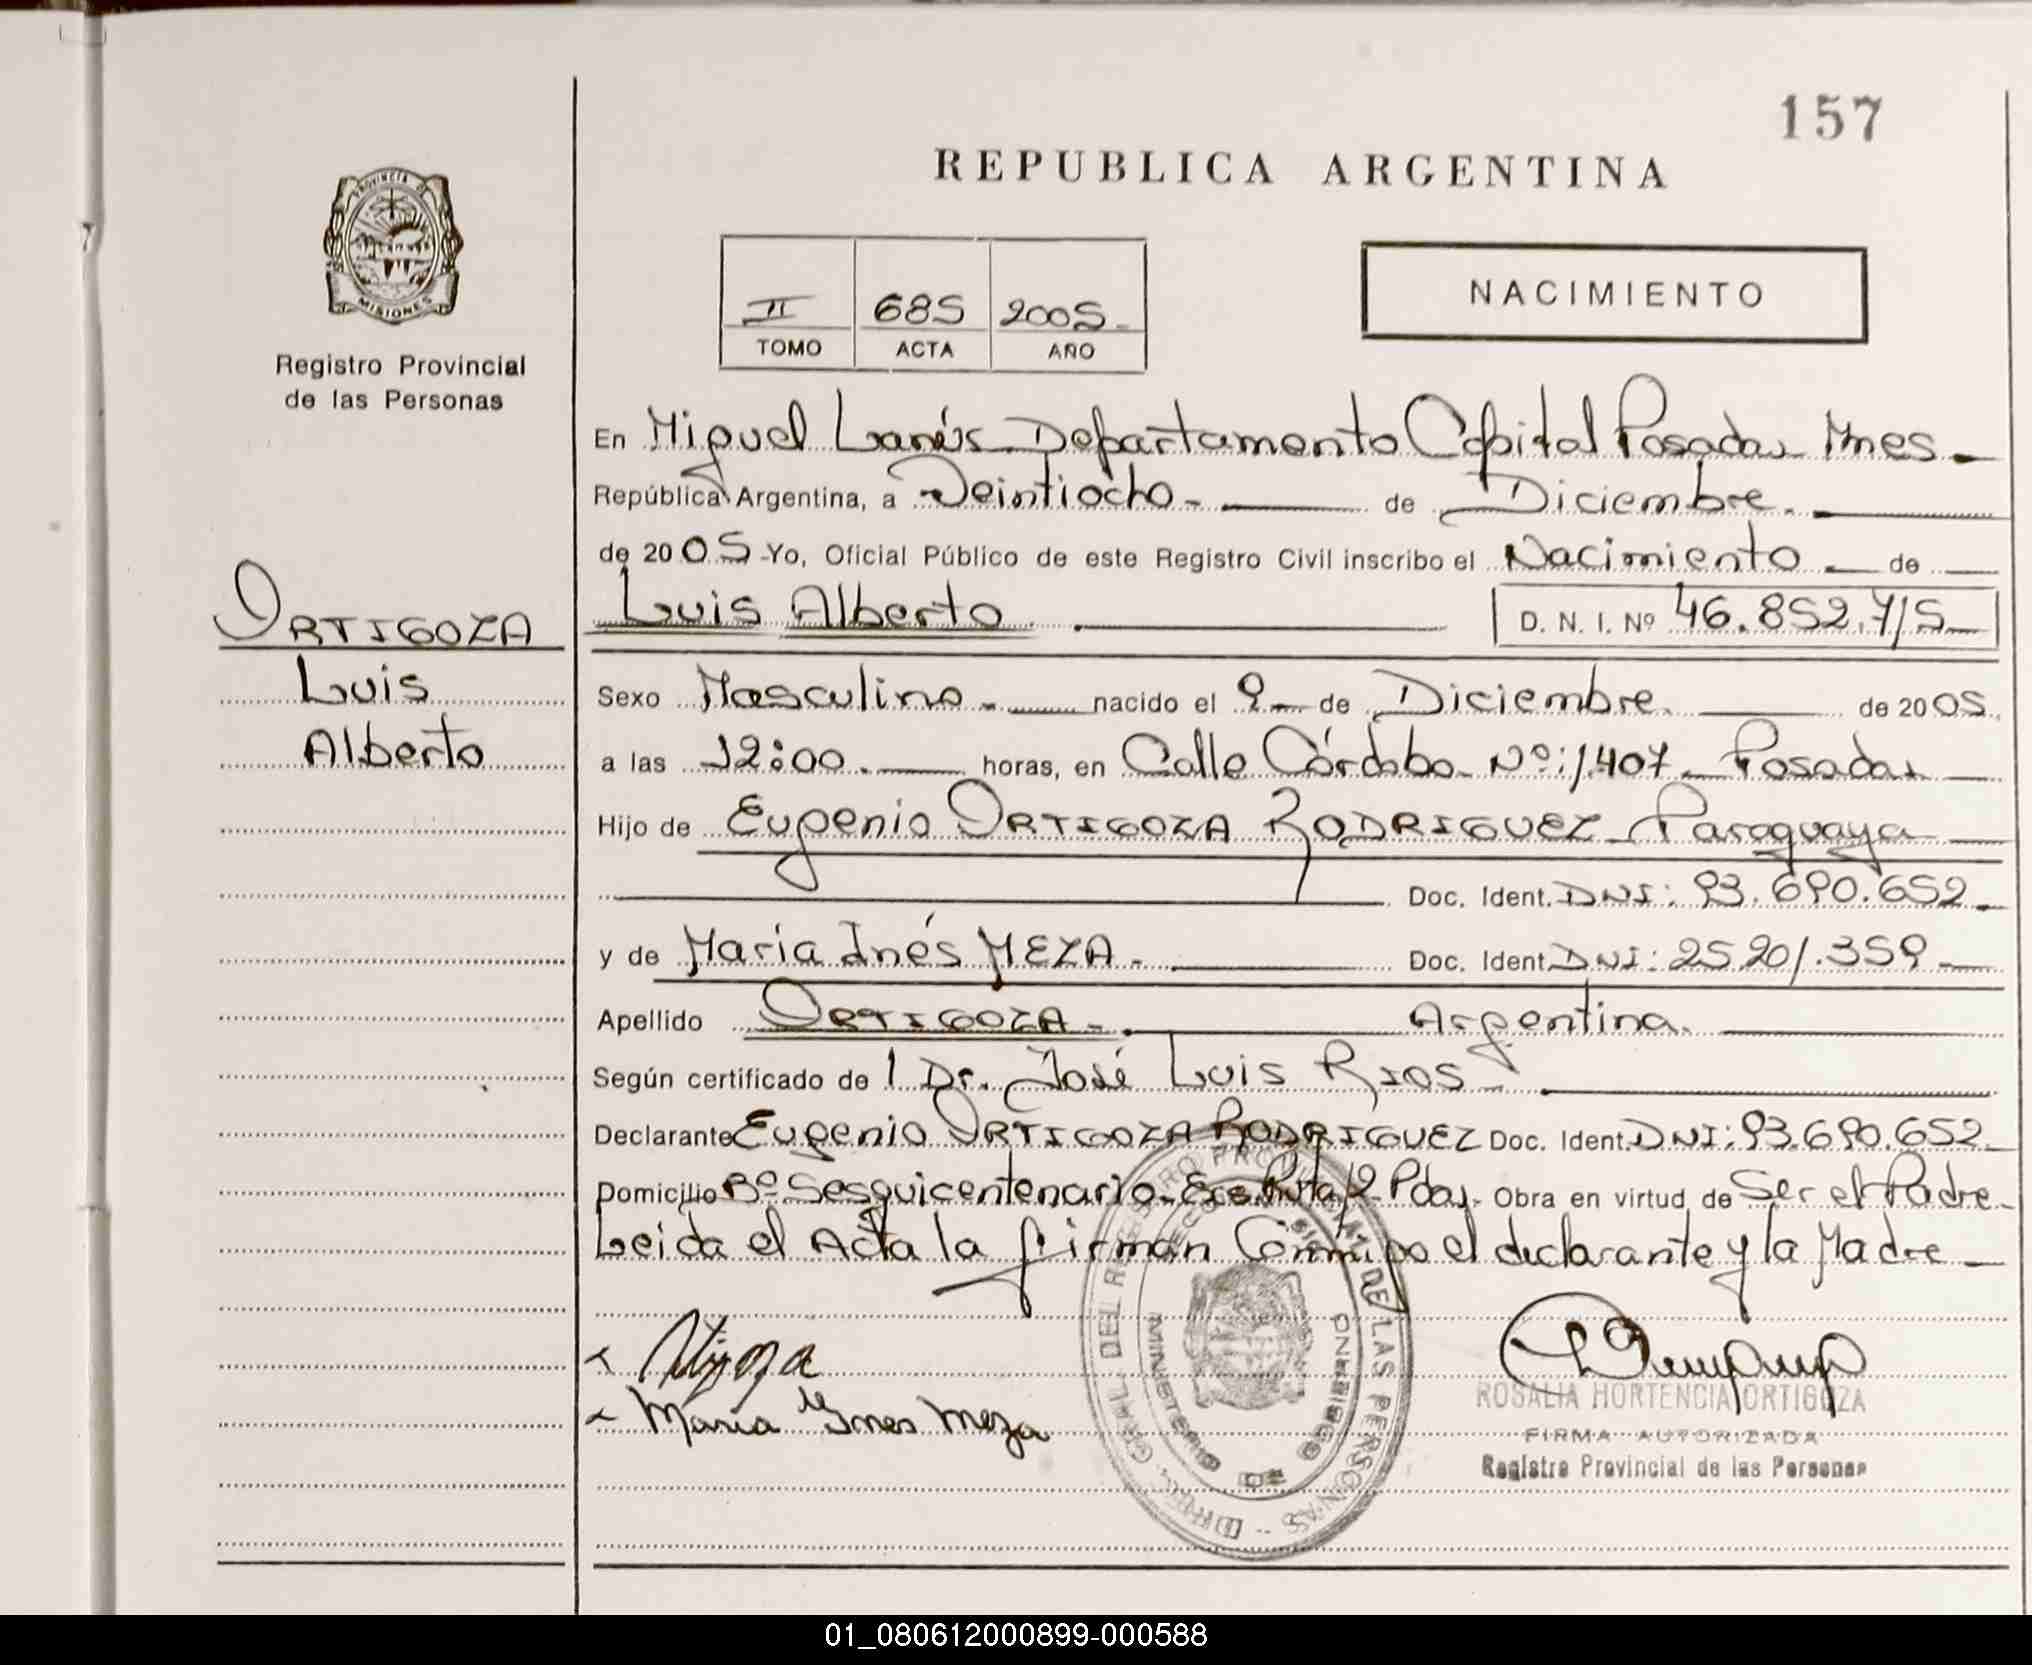 157
REPUBLICA ARGENTINA
PROVINCIA DE MISIONES
Registro Provincial
de las Personas
II 685 2005
TOMO ACTA AÑO
NACIMIENTO
En Miguel Lanús Departamento Capital Posadas Mnes
República Argentina, a Veintiocho de Diciembre
de 2005 Yo, Oficial Público de este Registro Civil inscribo el Nacimiento de
Luis Alberto D. N. I. Nº 46.852.715
ORTIGOZA
Luis
Alberto
Sexo Masculino nacido el 9 de Diciembre de 2005
a las 12:00 horas, en Calle Córdoba Nº: 1.407 Posadas
Hijo de Eugenio ORTIGOZA RODRIGUEZ Paraguaya
Doc. Ident. DNI: 93.690.652
y de Maria Inés MEZA Doc. Ident. DNI: 25.201.359
Apellido ORTIGOZA Argentina
Según certificado de 1 Dr. José Luis RIOS
Declarante Eugenio ORTIGOZA RODRIGUEZ Doc. Ident. DNI: 93.690.652
Domicilio Bº Sesquicentenario Ruta 12 Pdas. Obra en virtud de Ser el Padre
Leida el Acta la firman Conmigo el declarante y la Madre
Maria Ynes Meza
ROSALIA HORTENCIA ORTIGOZA
FIRMA AUTORIZADA
Registro Provincial de las Personas
DIREC. GRAL. DEL REGISTRO PROVINCIAL DE LAS PERSONAS
MINISTERIO DE GOBIERNO
01_080612000899-000588